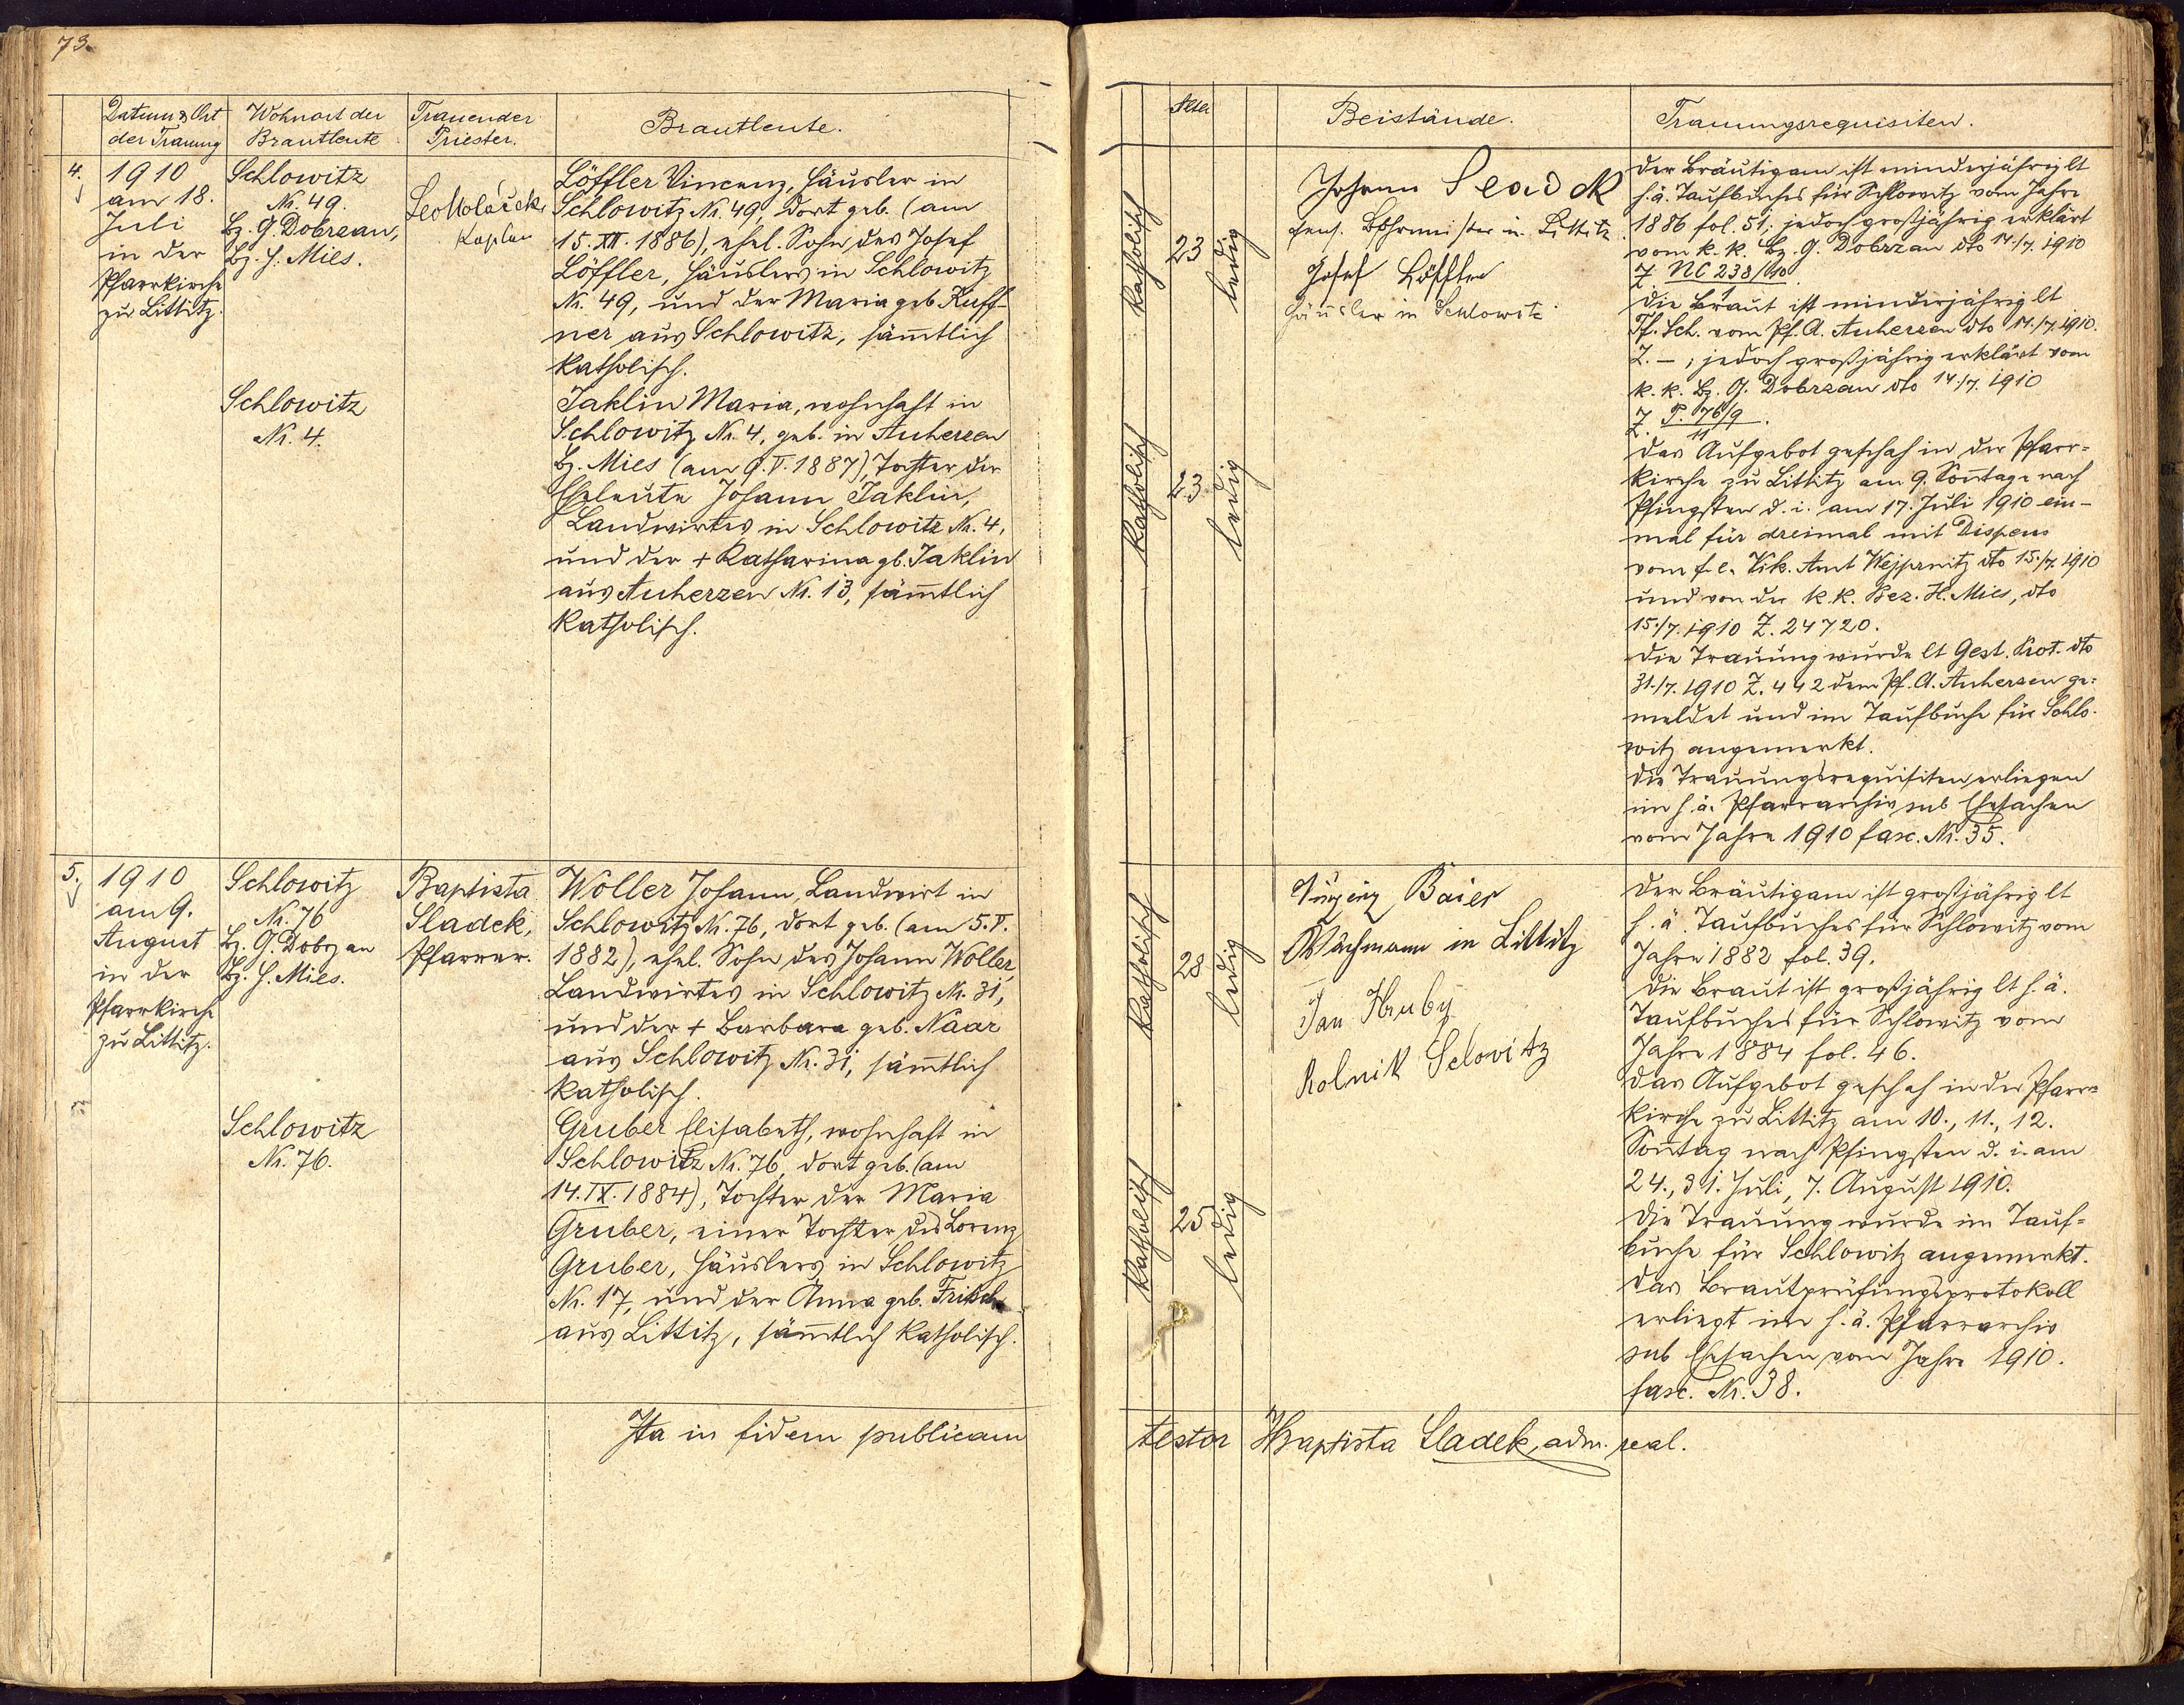 73.
Datum & Ort
der Trauung
Wohnort der
Brautleute
Trauender
Priester.
Brautleute.
4.
1910
am 18.
Juli
in der
Pfarrkirche
zu Littitz.
Schlowitz
Nr. 49.
Bz. G. Dobrzan,
Bz. H. Mies.
Schlowitz
Nr. 4.
Leo Molaček
Kaplan
Löffler Vincenz, Häusler in
Schlowitz Nr. 49, dort geb. (am
15. XII. 1886), ehel. Sohn des Josef
Löffler, Häuslers in Schlowitz
Nr. 49, und der Maria geb. Kuff-
ner aus Schlowitz, säm̄tlich
katholisch.
Jaklin Maria, wohnhaft in
Schlowitz Nr. 4, geb. in Auherzen
Bz. Mies (am 9. V. 1887), Tochter der
Eheleute Johann Jaklin,
Landwirtes in Schlowitz Nr. 4,
und der + Katharina gb. Jaklin
aus Auherzen Nr. 13, säm̄tlich
katholisch.
5.
1910
am 9.
August
in der
Pfarrkirche
zu Littitz.
Schlowitz
Nr. 76
Bz. G. Dobrzan
Bz. H. Mies.
Schlowitz
Nr. 76.
Baptista
Sladek,
Pfarrer.
Woller Johann, Landwirt in
Schlowitz Nr. 76, dort geb. (am 5. V.
1882), ehel. Sohn des Johann Woller,
Landwirtes in Schlowitz Nr. 31,
und der + Barbara geb. Naar
aus Schlowitz Nr. 31, säm̄tlich
katholisch.
Gruber Elisabeth, wohnhaft in
Schlowitz Nr. 76, dort geb. (am
14. IX. 1884), Tochter der Maria
Gruber, einer Tochter des Lorenz
Gruber, Häuslers in Schlowitz
Nr. 17, und der Anna geb. Fritsch
aus Littitz, säm̄tlich katholisch.
Ita in fidem publicam
Alter
Beistände.
Trauungsrequisiten.
katholisch
23
ledig
katholisch
23
ledig
Johann
in Littitz
Josef Löffler
Häusler in Schlowitz
Der Bräutigam ist minderjährig lt
h. ä. Taufbuches für Schlowitz vom Jahre
1886 fol. 51; jedoch großjährig erklärt
vom k. k. Bz. G. Dobrzan dto 14./7. 1910
Z. NC 238/10.
Die Braut ist minderjährig lt
Tf. Sch. vom Pf. A. Auherzen dto 14./7. 1910.
Z. –; jedoch großjährig erklärt vom
k. k. Bz. G. Dobrzan dto 14./7. 1910
Z. P. 76/9
11
Das Aufgebot geschah in der Pfarr-
kirche zu Littitz am 9. Son̄tage nach
Pfingsten d. i. am 17. Juli 1910 ein-
mal für dreimal mit Dispens
vom f. e. Vik. Amt Wejprnitz dto 15./7. 1910
und von der k. k. Bez. H. Mies, dto
15./7. 1910 Z. 24720.
Die Trauung wurde lt Gest. Prot. dto
31./7. 1910 Z. 442 dem Pf. A. Auherzen ge-
meldet und im Taufbuche für Schlo-
witz angemerkt.
Die Trauungsrequisiten erliegen
im h. ä. Pfarrarchiv sub Ehesachen
vom Jahre 1910 fasc. Nr. 35.
katholisch
28
ledig
katholisch
25
ledig
Baier
Wachmann in Littitz
Jan Hruby
Rolnik Selovitz
Der Bräutigam ist großjährig lt
h. ä. Taufbuches für Schlowitz vom
Jahre 1882 fol. 39.
Die Braut ist großjährig lt h. ä.
Taufbuches für Schlowitz vom
Jahre 1884 fol. 46.
Das Aufgebot geschah in der Pfarr-
kirche zu Littitz am 10., 11., 12.
Son̄tag nach Pfingsten d. i. am
24., 31. Juli, 7. August 1910.
Die Trauung wurde im Tauf-
buche für Schlowitz angemerkt.
Das Brautprüfungsprotokoll
erliegt im h. ä. Pfarrarchiv
sub Ehesachen vom Jahre 1910.
fasc. Nr. 38.
testor Baptista Sladek, adm. real.